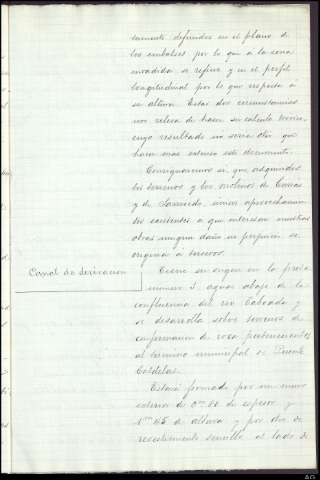 camente definidas en el plano de
los embalses por lo que á la zona
invadida se refiere y en el perfil
longitudinal por lo que respecta á
su altura. Estas dos circunstancias
nos releva de hacer su cálculo teorico,
cuyo resultado no seria otro que
hacer mas extenso este documento.
Consignaremos si, que adquiridos
los terrenos y los molinos de
y de únicos aprovechamien
tos existentes á que interesan nuestras
obras ningun daño ni perjuicio se
origina á terceros.
Canal de derivacion
Tiene su origen en la presa
número 3 aguas abajo de la
confluencia del rio Calvado y
se desarrolla sobre terrenos de
conformacion de roca pertenecientes
al término municipal de Puente
Caldelas.
Estará formado por un muro
exterior de 0m 80 de espesor y
1m 65 de altura y por otro de
revestimiento sencillo al lado de